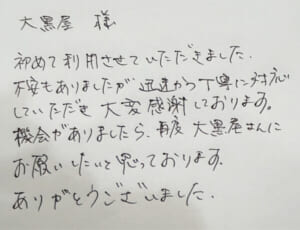 大黒屋 様
初めて利用させていただきました.
不安もありましたが 迅速かつ丁寧に対応
していただき 大変感謝しております。
機会がありましたら、再度 大黒屋さんに
お願いしたいと思っております.
ありがとうございました.